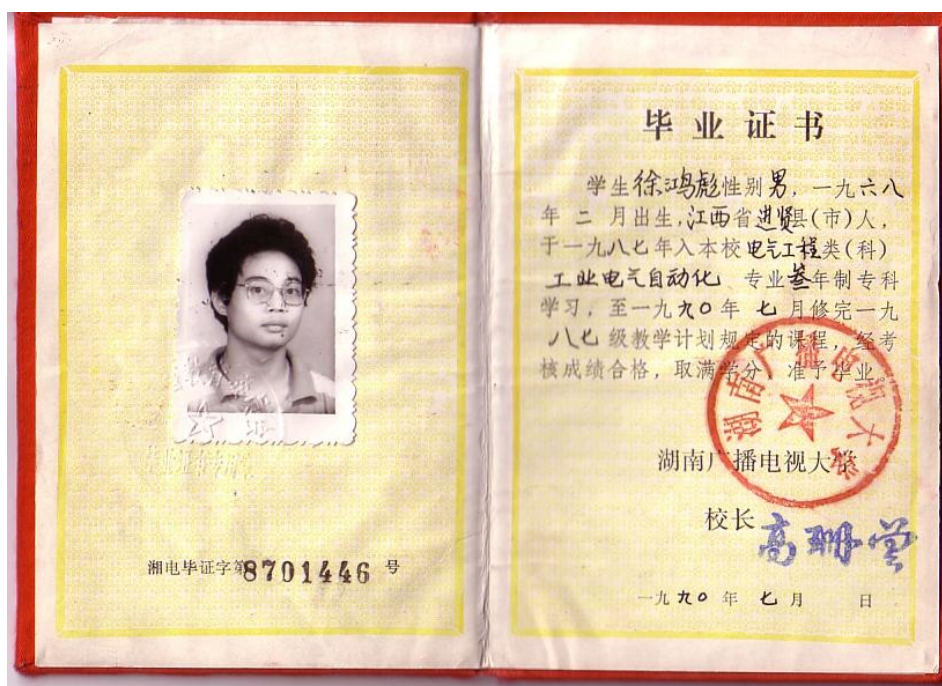 湘电毕证字第8701446号
毕业证书
学生徐鸿彪性别男，一九六八
年二月出生，江西省进贤县(市)人，
于一九八七年入本校电气工程类(科)
工业电气自动化 专业叁年制专科
学习，至一九九〇年七月修完一九
八七级教学计划规定的课程，经考
核成绩合格，取满学分，准予毕业。
湖南广播电视大学
湖南广播电视大学
校长
一九九〇年七月 日